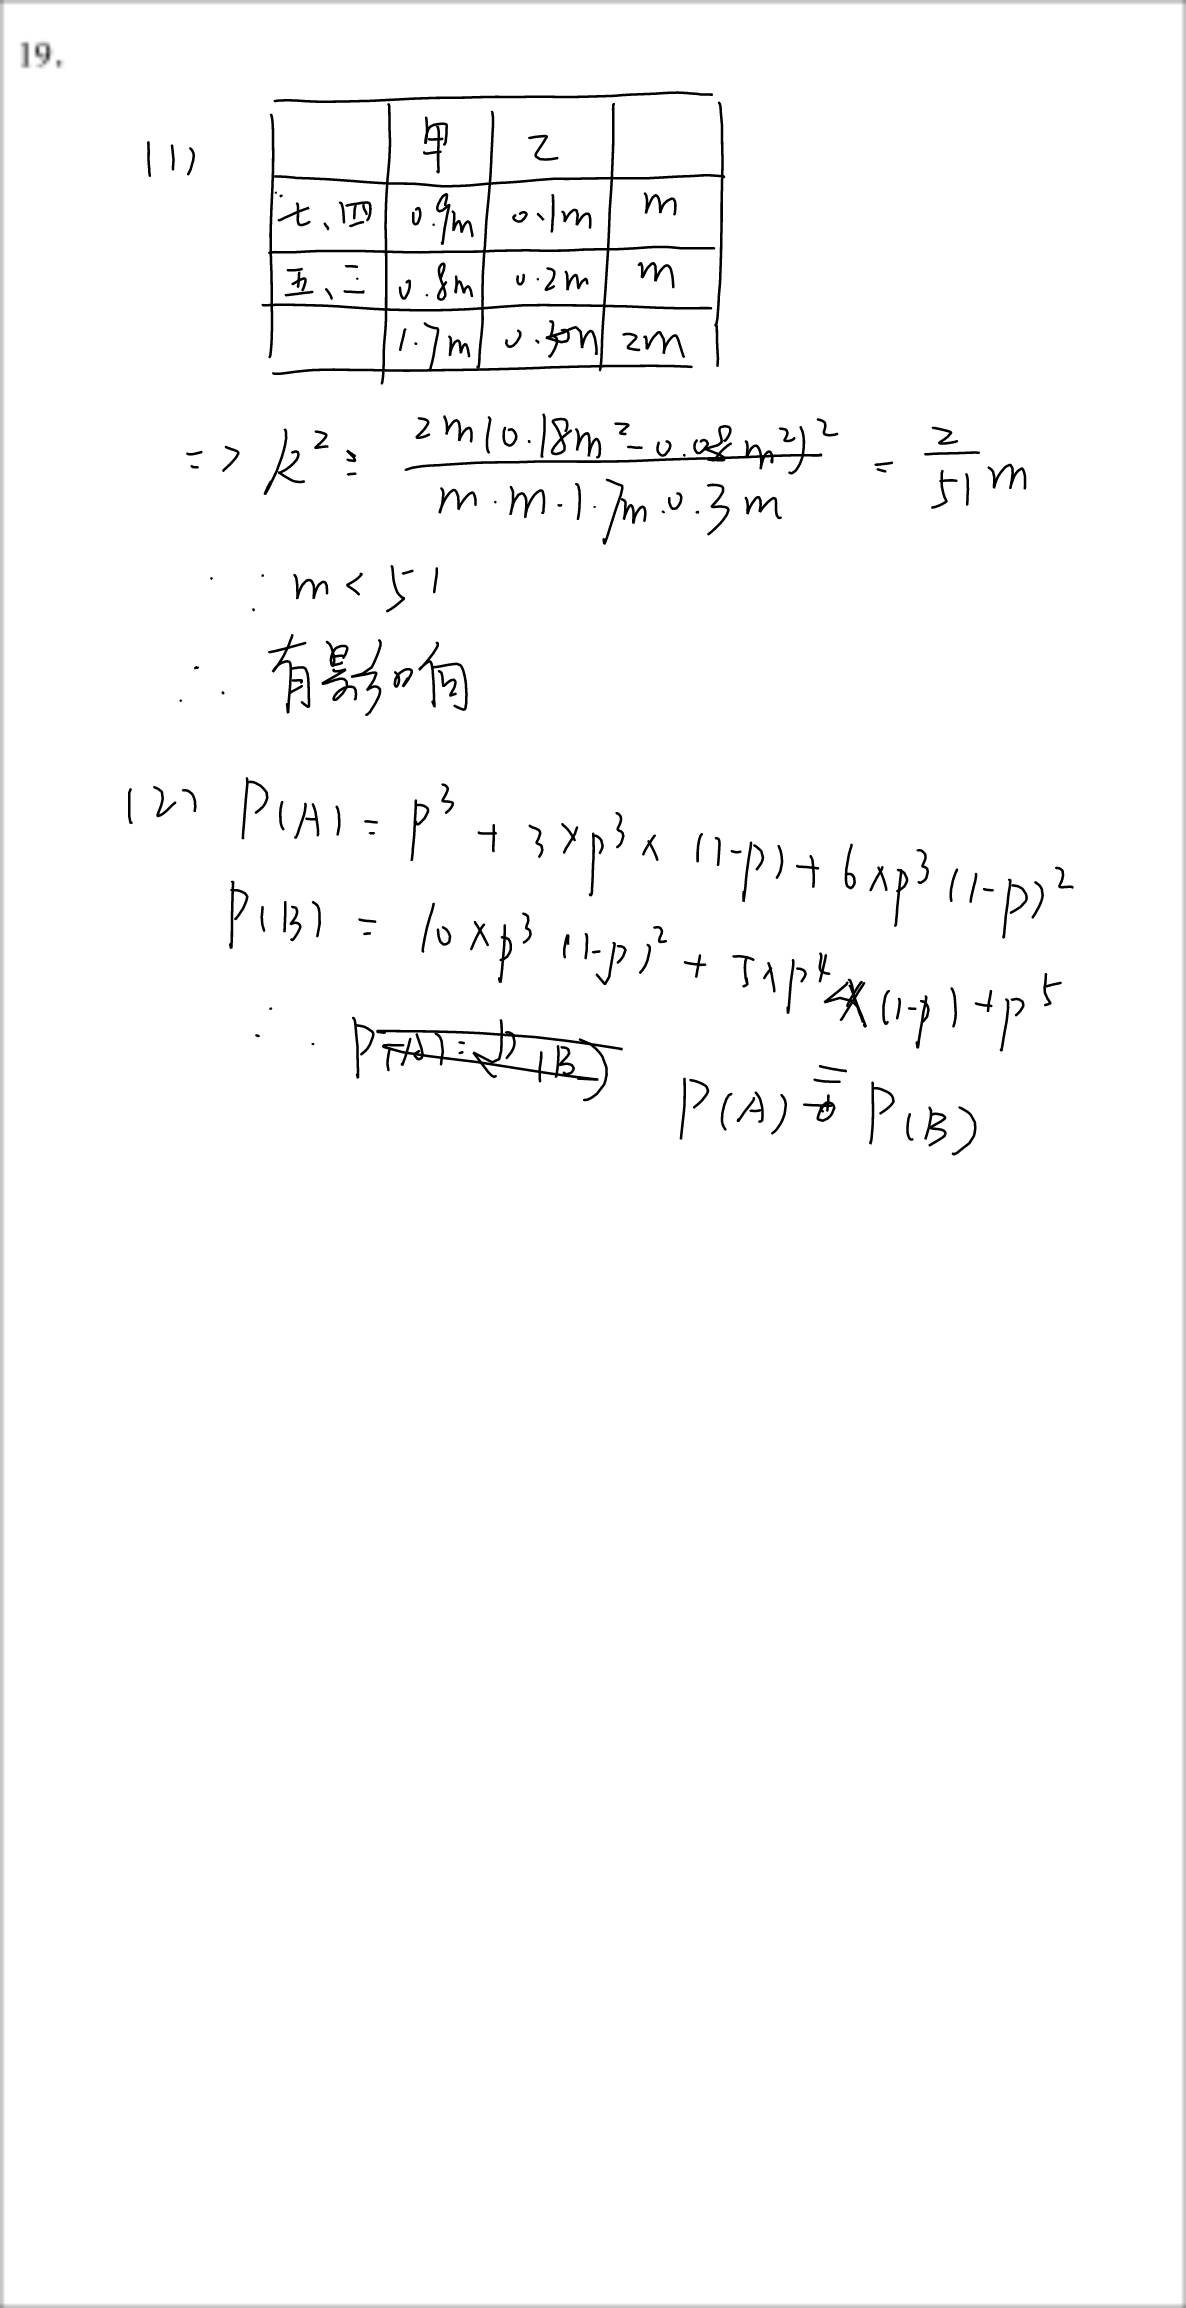 19.
(1)
甲 乙
七、四 0.9m 0.1m m
五、三 0.8m 0.2m m
1.7m 0.3m 2m
=> k² = 2m(0.18m²-0.08m²)² / m·m·1.7m·0.3m = 2/51 m
∵ m < 51
∴ 有影响
(2) P(A) = p³ + 3×p³×(1-p) + 6×p³(1-p)²
P(B) = 10×p³(1-p)² + 5×p⁴×(1-p)+p⁵
∴ P(A) = P(B)